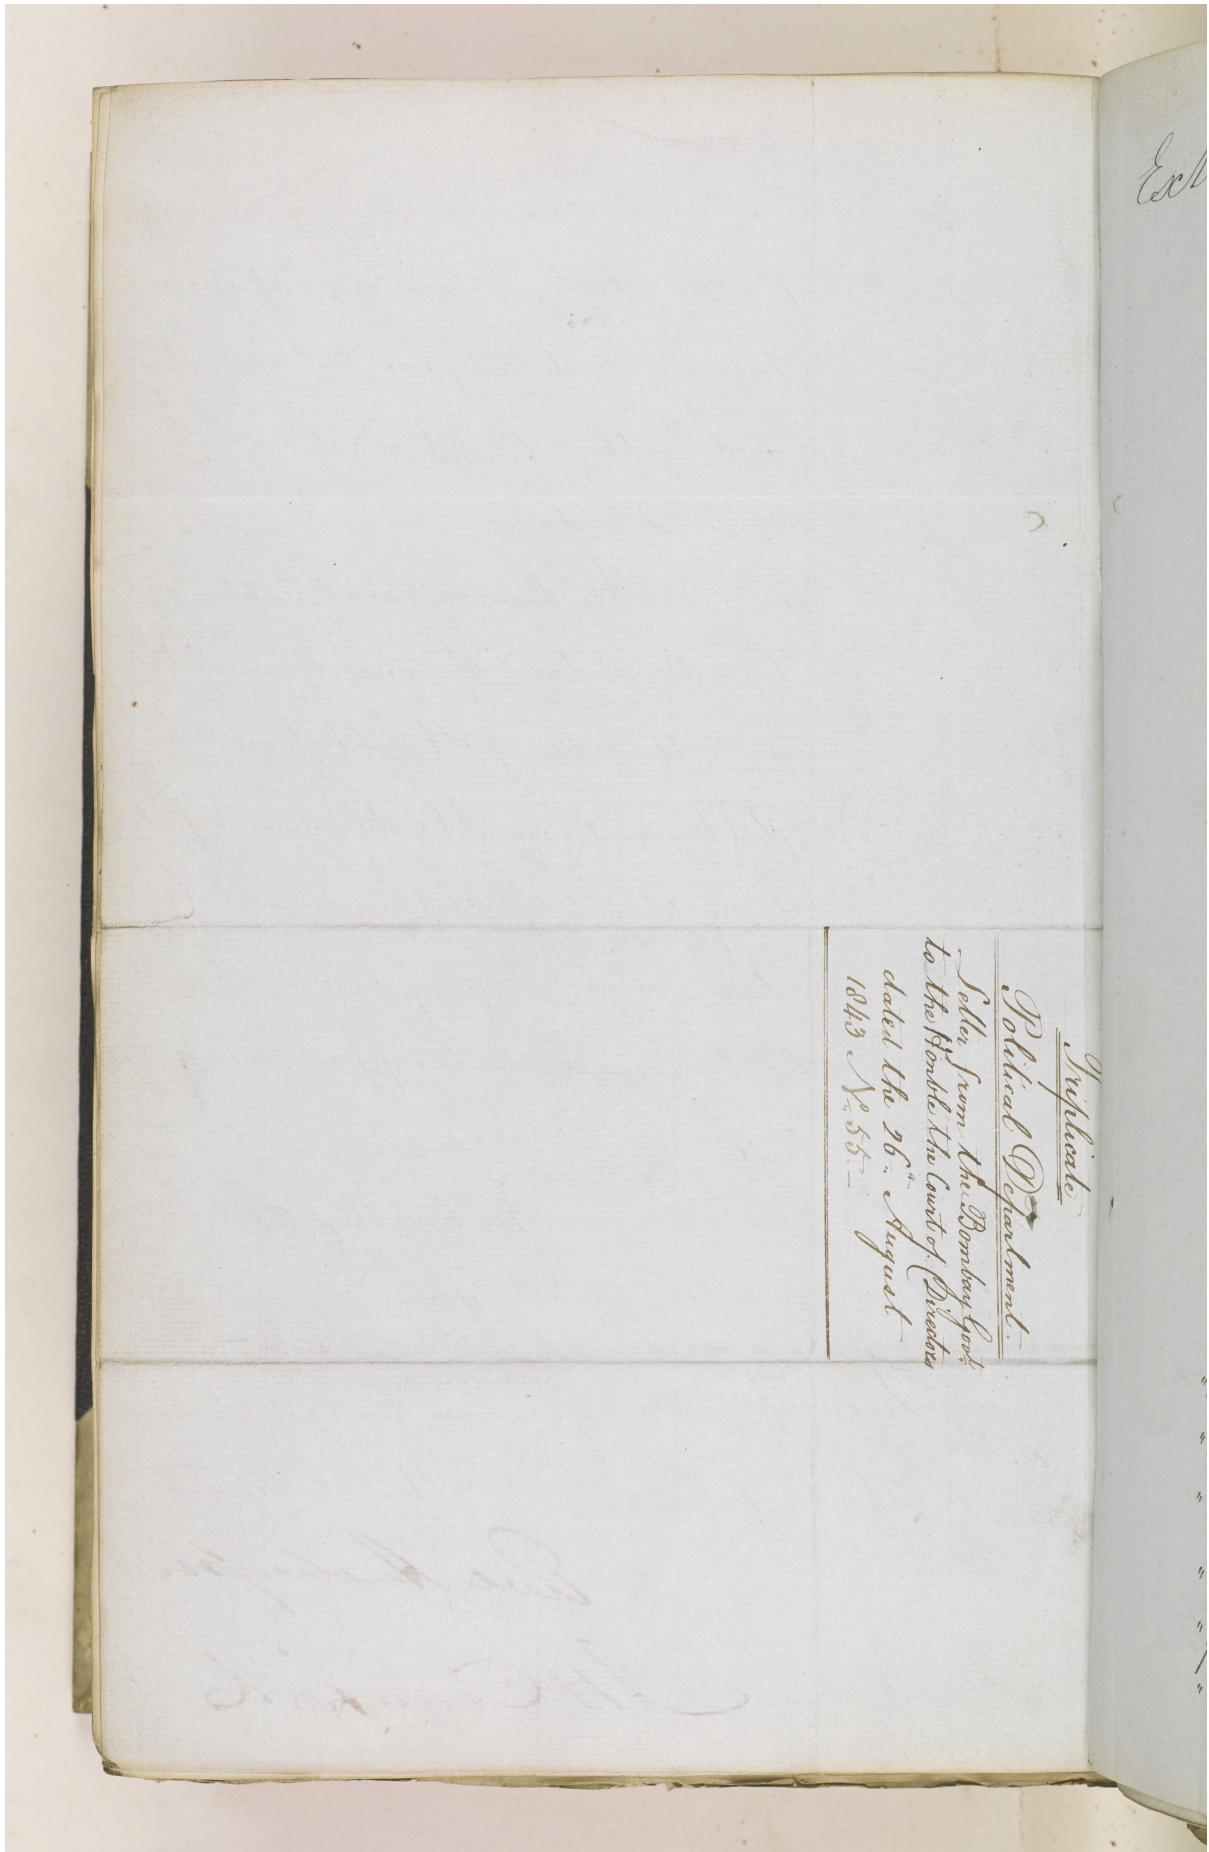 Triplicate
Political Department.
Letter from the Bombay Govt.
to the Honble the Court of Directors
dated the 26th August
1843 No. 55 —